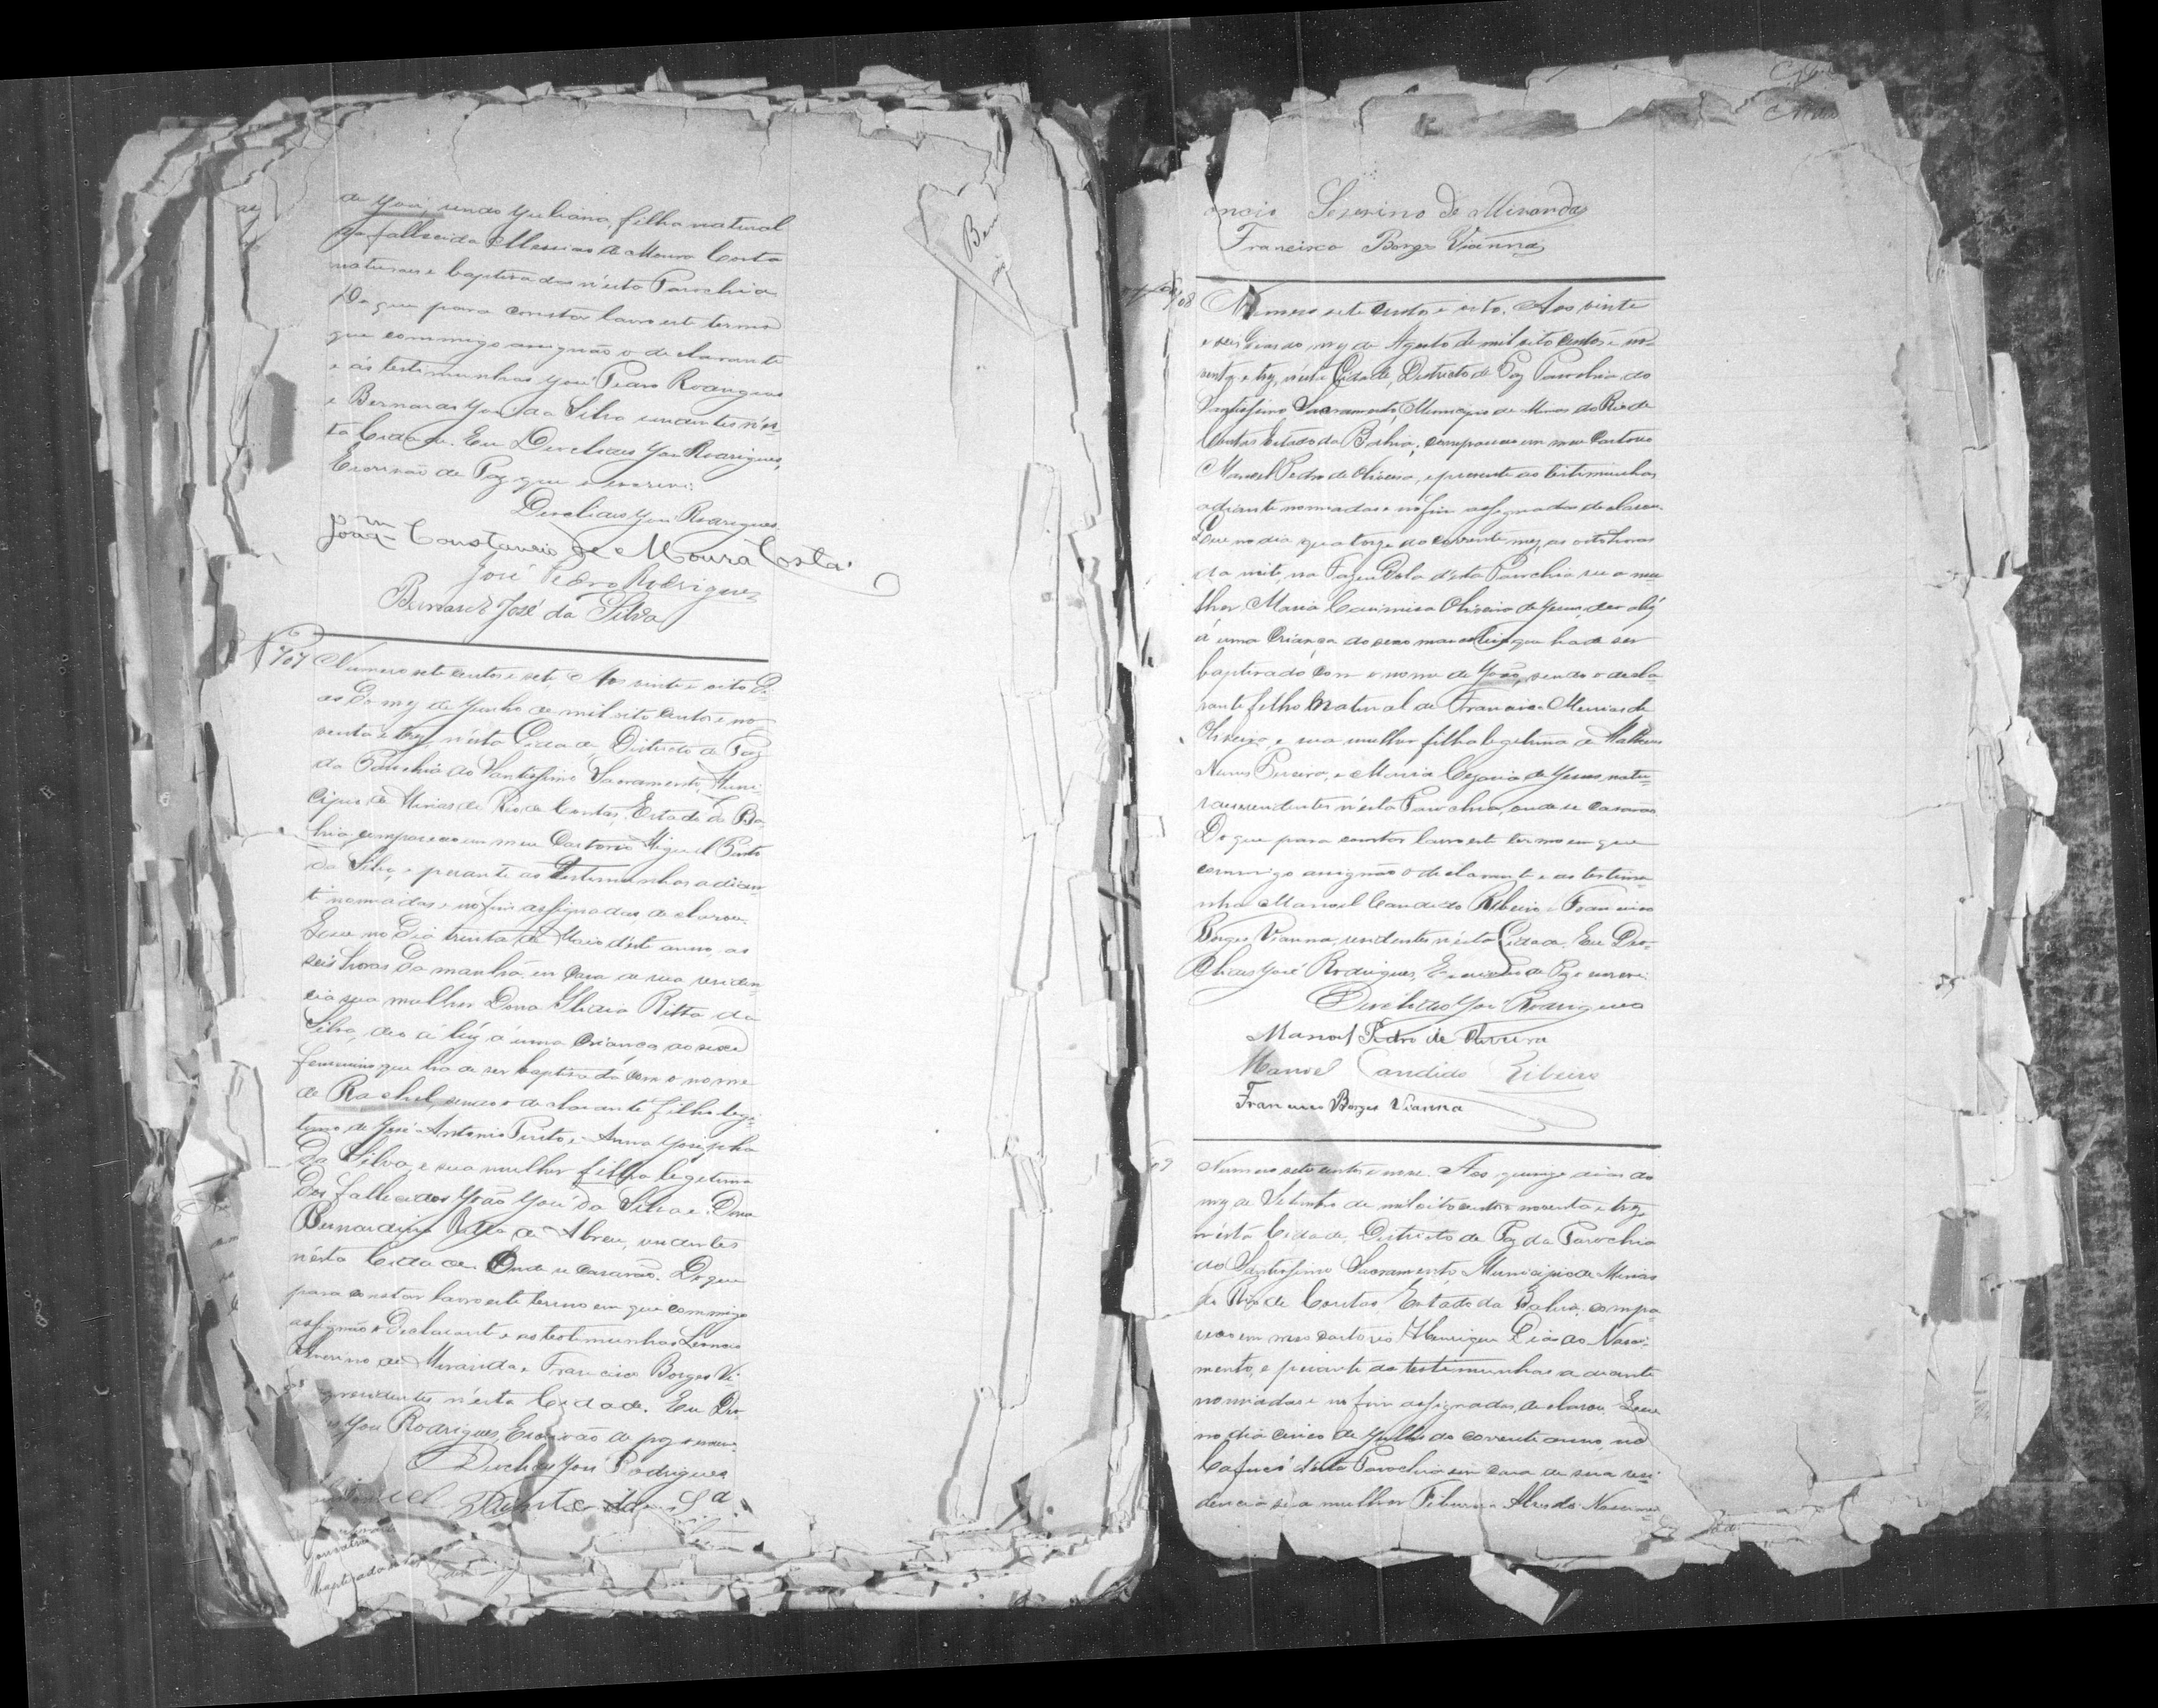 de José, sendo Juliana, filha natural
da fallecida Messias de Moura Costa
naturaes e baptisados n'esta Parochia
Do que para constar lavro este termo
que commigo assignão o declarante
e ás testimunhas José Pedro Rodrigues
e Bernardo José da Silva residentes n'es-
ta Cidade. Eu Deoclides José Rodrigues,
Escrivão de Paz que o escrevi.
Deoclides José Rodrigues
Joaqm Constancio de Moura Costa
José Pedro Rodrigues
Bernardo José da Silva
N 707 Numero sete centos e sete. Aos vinte e oito di-
as do mez de Junho de mil oito centos e no-
venta e trez, n'esta Cidade, Districto de Paz
da Parochia do Santissimo Sacramento, Muni-
cipio de Minas do Rio de Contas, Estado da Ba-
hia, compareceu em meu Cartorio Miguel Pinto
da Silva, e perante as testemunhas adian-
te nomiadas e no fim assignadas, declarou.
Que no dia trinta de Maio d'este anno, as
seis horas da manhã, em casa de sua residen-
cia sua mulher Dona Ritta da
Silva, deo á luz á uma Criança do sexo
feminino que ha de ser baptisada com o nome
de Rachel, sendo o declarante filho legi-
timo de José Antonio Pinto, e Anna Josepha
da Silva, e sua mulher filha legitima
dos fallecidos João José da Silva e Dona
Bernardina Ritta de Abreu, residentes
n'esta Cidade Onde se casarão. Do que
para constar lavro este termo em que commigo
assignão o declarante e as testimunhas
Severino de Miranda e Francisco Borges Vi-
residentes n'esta Cidade. Eu Deo-
José Rodrigues, Escrivão de paz o escrevi
Deoclides José Rodrigues
Pinto da Sa
baptisada
Ben
Severino de Miranda
Francisco Borges Vianna
708 Numero sete centos e oito. Aos vinte
e seis dias do mez de Agosto de mil oito centos e no-
venta e trez, n'esta Cidade, Districto de Paz Parochia do
Santissimo Sacramento, Municipio de Minas do Rio de
Contas Estado da Bahia; compareceu em meu Cartorio
Manoel Pedro de Oliveira, e perante as testimunhas
adiante nomiadas e no fim assignadas declarou.
Que no dia quatorze do corrente mez, as oito horas
da noite, na Fazenda d'esta Parochia sua mu-
lher, Maria Casimira Oliveira de Jesus, deo a luz
á uma Criança do sexo masculino que ha de ser
baptisado com o nome de João, sendo o decla-
rante filho natural de Francisca Messias de
Oliveira, e sua mulher filha legitima de Matheus
Nunes Pereira, e Maria de Jesus, natu-
raes residentes n'esta Parochia, onde se casarão
Do que para constar lavro este termo em que
commigo assignão o declarante e as testimu-
nha Manoel Candido Ribeiro e Francisco
Borges Vianna, residentes n'esta Cidade. Eu Deo-
clides José Rodrigues, Escrivão de Paz o escrevi.
Deoclides José Rodrigues
Manoel Pedro de Oliveira
Manoel Candido Ribeiro
Francisco Borges Vianna
09 Numero sete centos e nove. Aos quinze dias do
mez de Setembro de mil oito centos e noventa e trez
n'esta Cidade, Districto de Paz da Parochia
do Santissimo Sacramento Municipio de Minas
do Rio de Contas, Estado da Bahia, compa-
receo em meu cartorio Henrique Dias do Nasci-
mento, e perante as testimunhas adiante
nomiadas e no fim assignadas, declarou. Que
no dia cinco de Julho do corrente anno, no
d'esta Parochia em casa de sua resi-
dencia sua mulher Alves do Nascime-